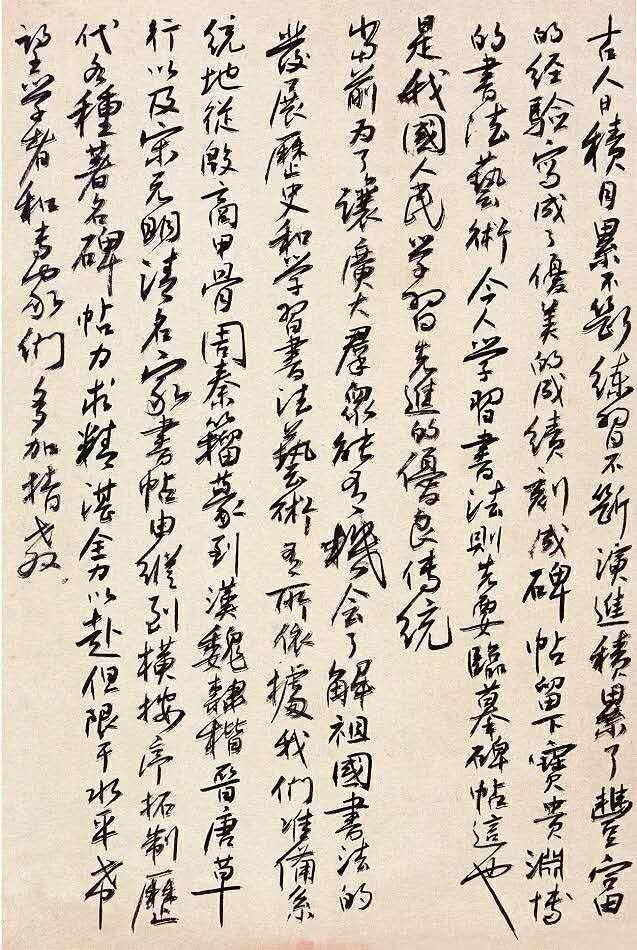 古人日積月累不斷练習不斷演進積累了豐富
的经驗寫成了優美的成績刻成碑帖留下寶貴淵博
的書法藝術今人学習書法則先要臨摹碑帖這也
是我國人民学習先進的優良傳統
当前为了讓廣大羣眾能有機会了解祖國書法的
發展歷史和学習書法藝術有所依據我们准備系
統地從殷商甲骨周秦籀篆到漢魏隸楷晉唐草
行以及宋元明清名家書帖由縱到橫按序拓制歷
代各種著名碑帖力求精湛全力以赴但限于水平希
望学者和專家们多加指教